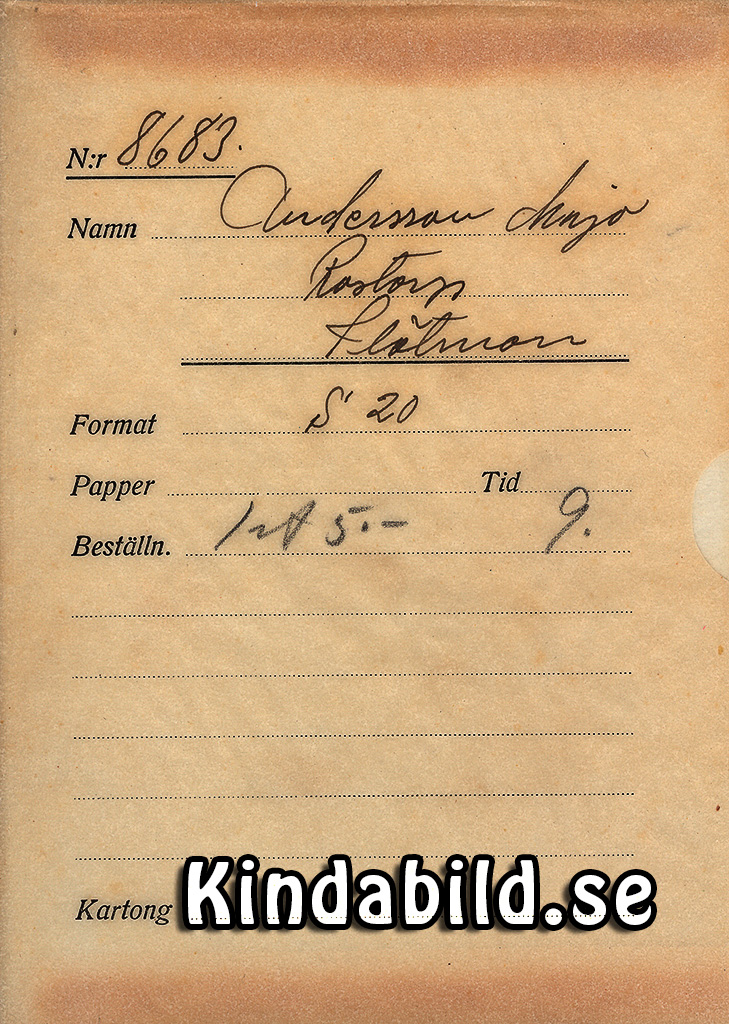 N:r 8683.
Namn Andersson Maja
Rostorp
Slätmon
Format S 20
Papper Tid
Beställn. 5.- 9.
Kartong Kindabild.se